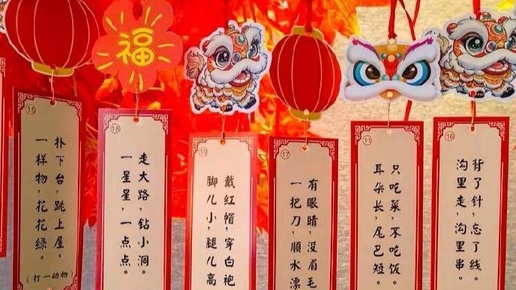 福
15
一样物，花花绿。
扑下台，跳上屋。
（打一动物）
18
一星星，一点点。
走大路，钻小洞。
19
脚儿小，腿儿高
戴红帽，穿白袍
17
一把刀，顺水漂
有眼睛，没眉毛
耳朵长，尾巴短。
只吃菜，不吃饭。
16
沟里走，沟里串。
背了针，忘了线。